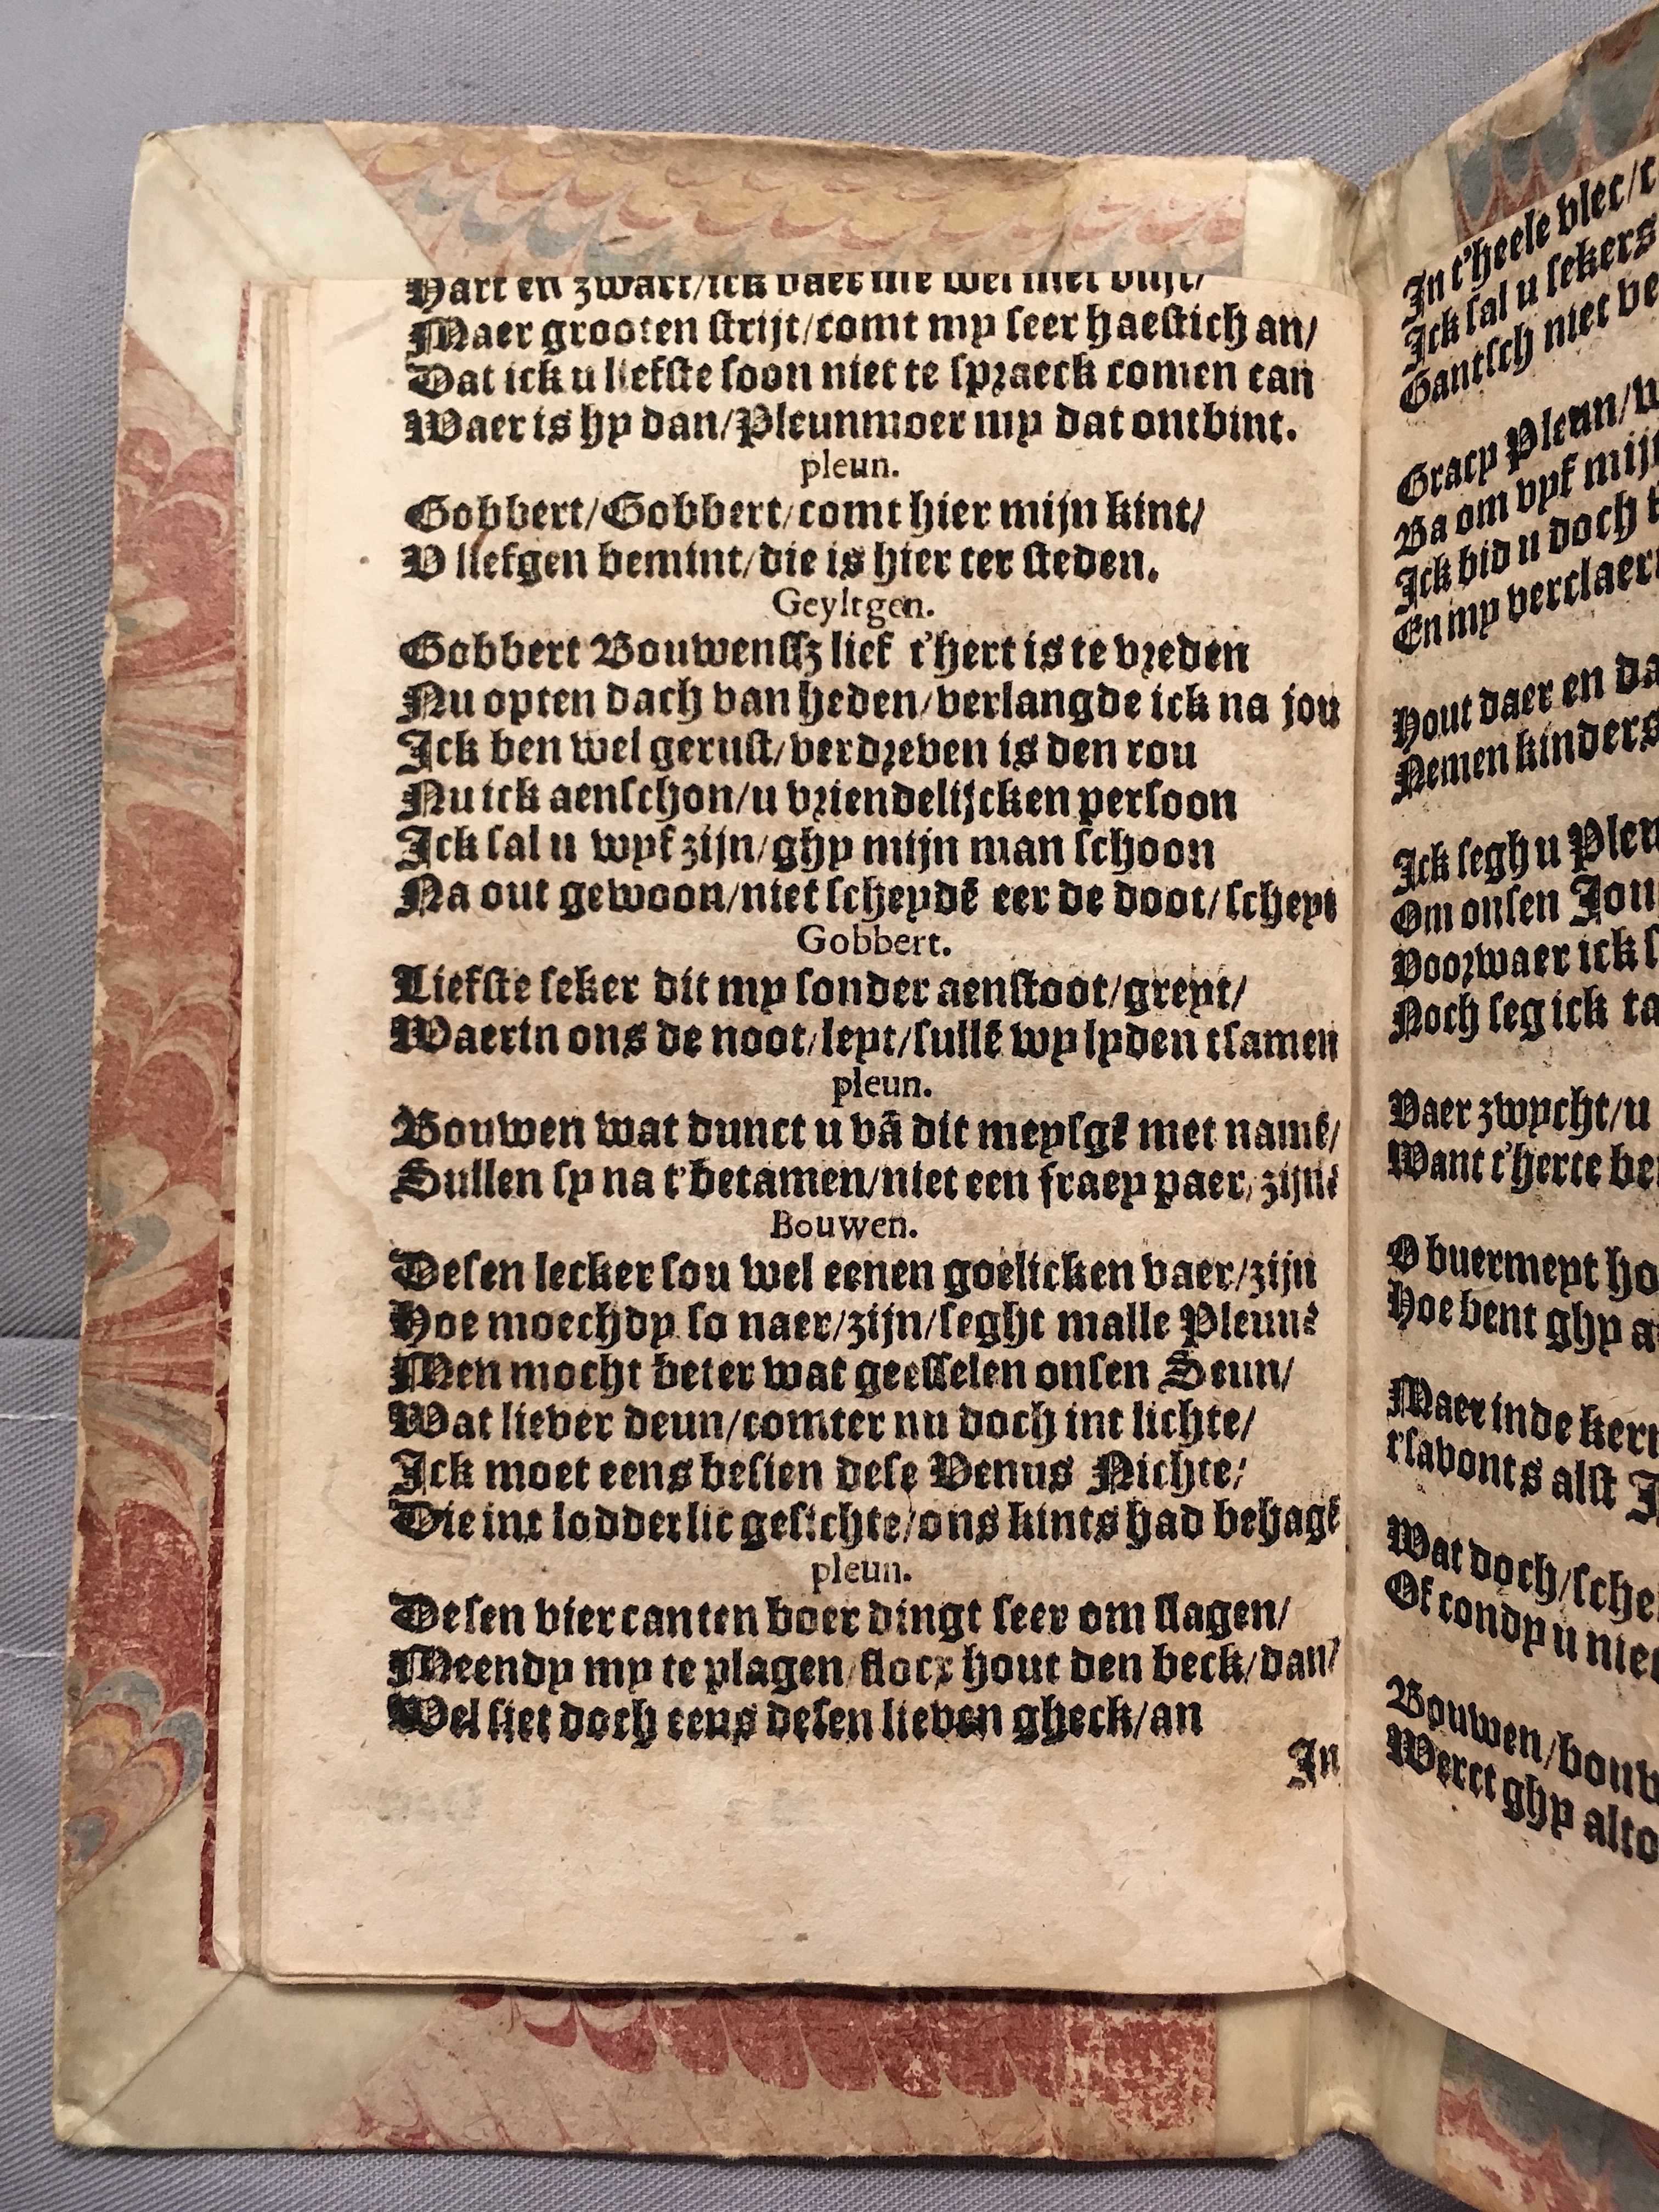 Hart en zwart/ick vaer me wel met vlijt/
Maer grooten strijt/comt my seer haestich an/
Dat ick u liefste soon niet te spraeck comen can
Waer is hy dan/Pleunmoer my dat ontbint.
pleun.
Gobbert/Gobbert/comt hier mijn kint/
V liefgen bemint/die is hier ter steden.
Geyltgen.
Gobbert Bouwenssz lief t'hert is te vreden
Nu opten dach van heden/verlangde ick na jou
Ick ben wel gerust/verdreven is den rou
Nu ick aenschon/u vriendelijcken persoon
Ick sal u wyf zijn/ghy mijn man schoon
Na out gewoon/niet scheydē eer de doot/scheyt
Gobbert.
Liefste seker dit my sonder aenstoot/greyt/
Waerin ons de noot/leyt/sullē wy lyden tsamen
pleun.
Bouwen wat dunct u vā dit meysgē met namē/
Sullen sy na t'betamen/niet een fraey paer/zijn?
Bouwen.
Desen lecker sou wel eenen goelicken vaer/zijn
Hoe moechdy so naer/zijn/seght malle Pleun?
Men mocht beter wat geesselen onsen Seun/
Wat liever deun/comter nu doch int lichte/
Ick moet eens besien dese Venus Nichte/
Die int lodderlic gesichte/ons kints had behagē
pleun.
Desen viercanten boer dingt seer om slagen/
Meendy my te plagen/flocx hout den beck/dan/
Wel siet doch eens desen lieven gheck/an
In
In t'heele vlec/
Ick sal u sekers
Gantsch niet
Gracy Pleun/
Va om vyf
Ick bid u doch
En my
Hout daer en
Nemen kinders
Ick segh u
Om onsen
Voorwaer ick
Noch seg ick
Vaer zwycht/u
Want t'herte
O buermeyt
Hoe bent ghy
Maer inde
t'savonts alst
Wat doch/
Of condy u
Bouwen/
Werct ghy